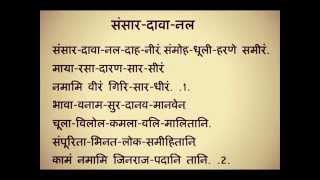 संसार-दावा-नल
संसार-दावा-नल-दाह-नीरं संमोह-धूली-हरणे समीरं.
माया-रसा-दारण-सार-सीरं
नमामि वीरं गिरि-सार-धीरं. .1.
भावा-वनाम-सुर-दानव-मानवेन
चूला-विलोल-कमला-वलि-मालितानि.
संपूरिता-भिनत-लोक-समीहितानि.
कामं नमामि जिनराज-पदानि तानि. .2.